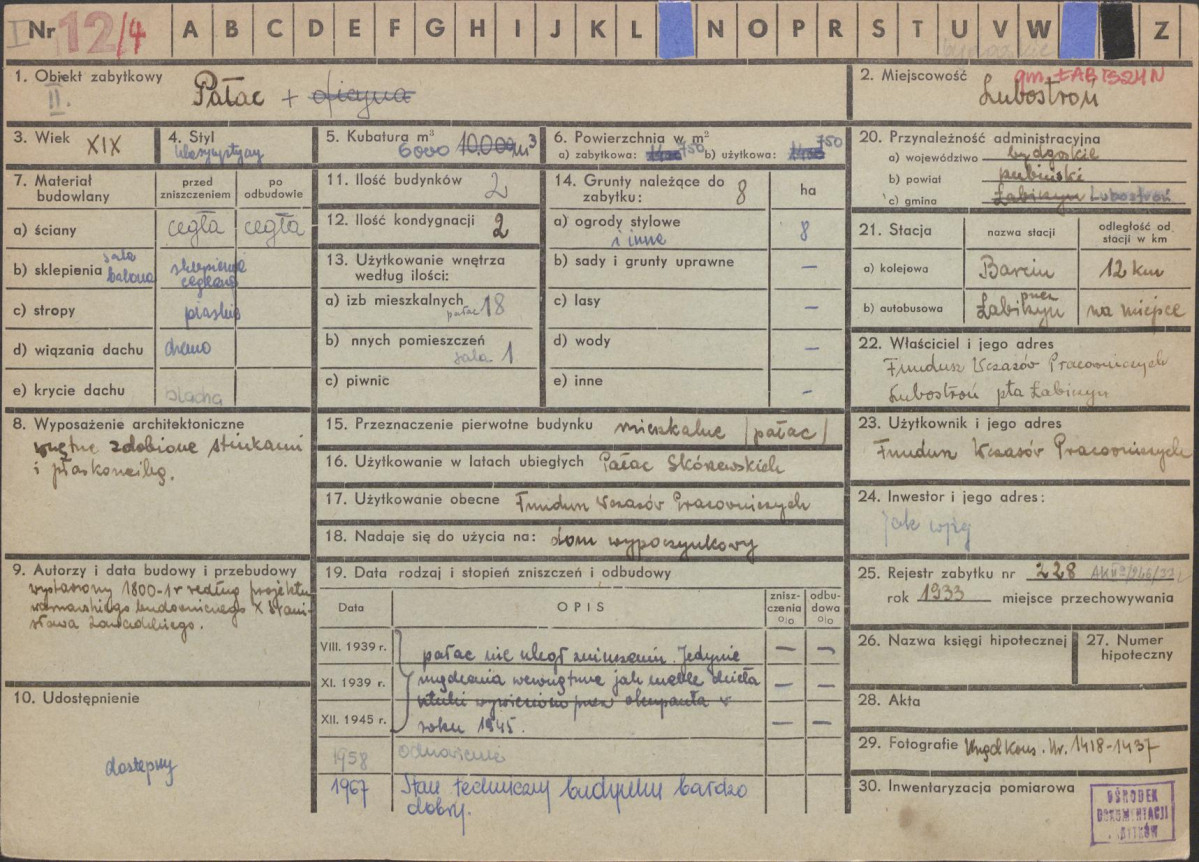 I Nr 12/4 A B C D E F G H I J K L N O P R S T U V W Z
bydgoskie
1. Obiekt zabytkowy
II. Pałac + oficyna
2. Miejscowość gm. ŁABISZYN
Lubostroń
3. Wiek XIX
4. Styl
klasycystyczny
5. Kubatura m³
6000 10.000 m³
6. Powierzchnia w m²
a) zabytkowa: 750 b) użytkowa: 750
20. Przynależność administracyjna
a) województwo bydgoskie
b) powiat szubiński
c) gmina Łabiszyn Lubostroń
7. Materiał budowlany
przed zniszczeniem
po odbudowie
a) ściany cegła cegła
b) sklepienia sala balowa sklepienie ceglane
c) stropy płaskie
d) wiązania dachu drewno
e) krycie dachu blacha
11. Ilość budynków 2
12. Ilość kondygnacji 2
13. Użytkowanie wnętrza
według ilości:
a) izb mieszkalnych
pałac 18
b) nnych pomieszczeń
sala 1
c) piwnic
14. Grunty należące do
zabytku: 8 ha
a) ogrody stylowe
i inne 8
b) sady i grunty uprawne —
c) lasy —
d) wody —
e) inne —
21. Stacja nazwa stacji odległość od stacji w km
a) kolejowa Barcin 12 km
b) autobusowa Łabiszyn przez na miejsce
22. Właściciel i jego adres
Fundusz Wczasów Pracowniczych
Lubostroń pta Łabiszyn
8. Wyposażenie architektoniczne
wnętrze zdobione stiukami
i płaskorzeźbą.
15. Przeznaczenie pierwotne budynku mieszkalne /pałac/
16. Użytkowanie w latach ubiegłych Pałac Skórzewskich
17. Użytkowanie obecne Fundusz Wczasów Pracowniczych
18. Nadaje się do użycia na: dom wypoczynkowy
23. Użytkownik i jego adres
Fundusz Wczasów Pracowniczych
24. Inwestor i jego adres:
jak wyżej
9. Autorzy i data budowy i przebudowy
wystawiony 1800-1 r według projektu
warszawskiego budowniczego X Stani-
sława Zawadzkiego.
10. Udostępnienie
dostępny
19. Data rodzaj i stopień zniszczeń i odbudowy
Data OPIS znisz-czenia % odbu-dowa %
VIII. 1939 r. pałac nie uległ zniszczeniu. Jedynie — —
XI. 1939 r. urządzenia wewnętrzne jak meble dzieła — —
sztuki wywieziono przez okupanta w
XII. 1945 r. roku 1945. — —
1958 odnowienie
1967 Stan techniczny budynku bardzo
dobry.
25. Rejestr zabytku nr 228
rok 1933 miejsce przechowywania
26. Nazwa księgi hipotecznej
27. Numer hipoteczny
28. Akta
29. Fotografie Urząd Kons. Nr. 1418-1437
30. Inwentaryzacja pomiarowa
OŚRODEK
DOKUMENTACJI